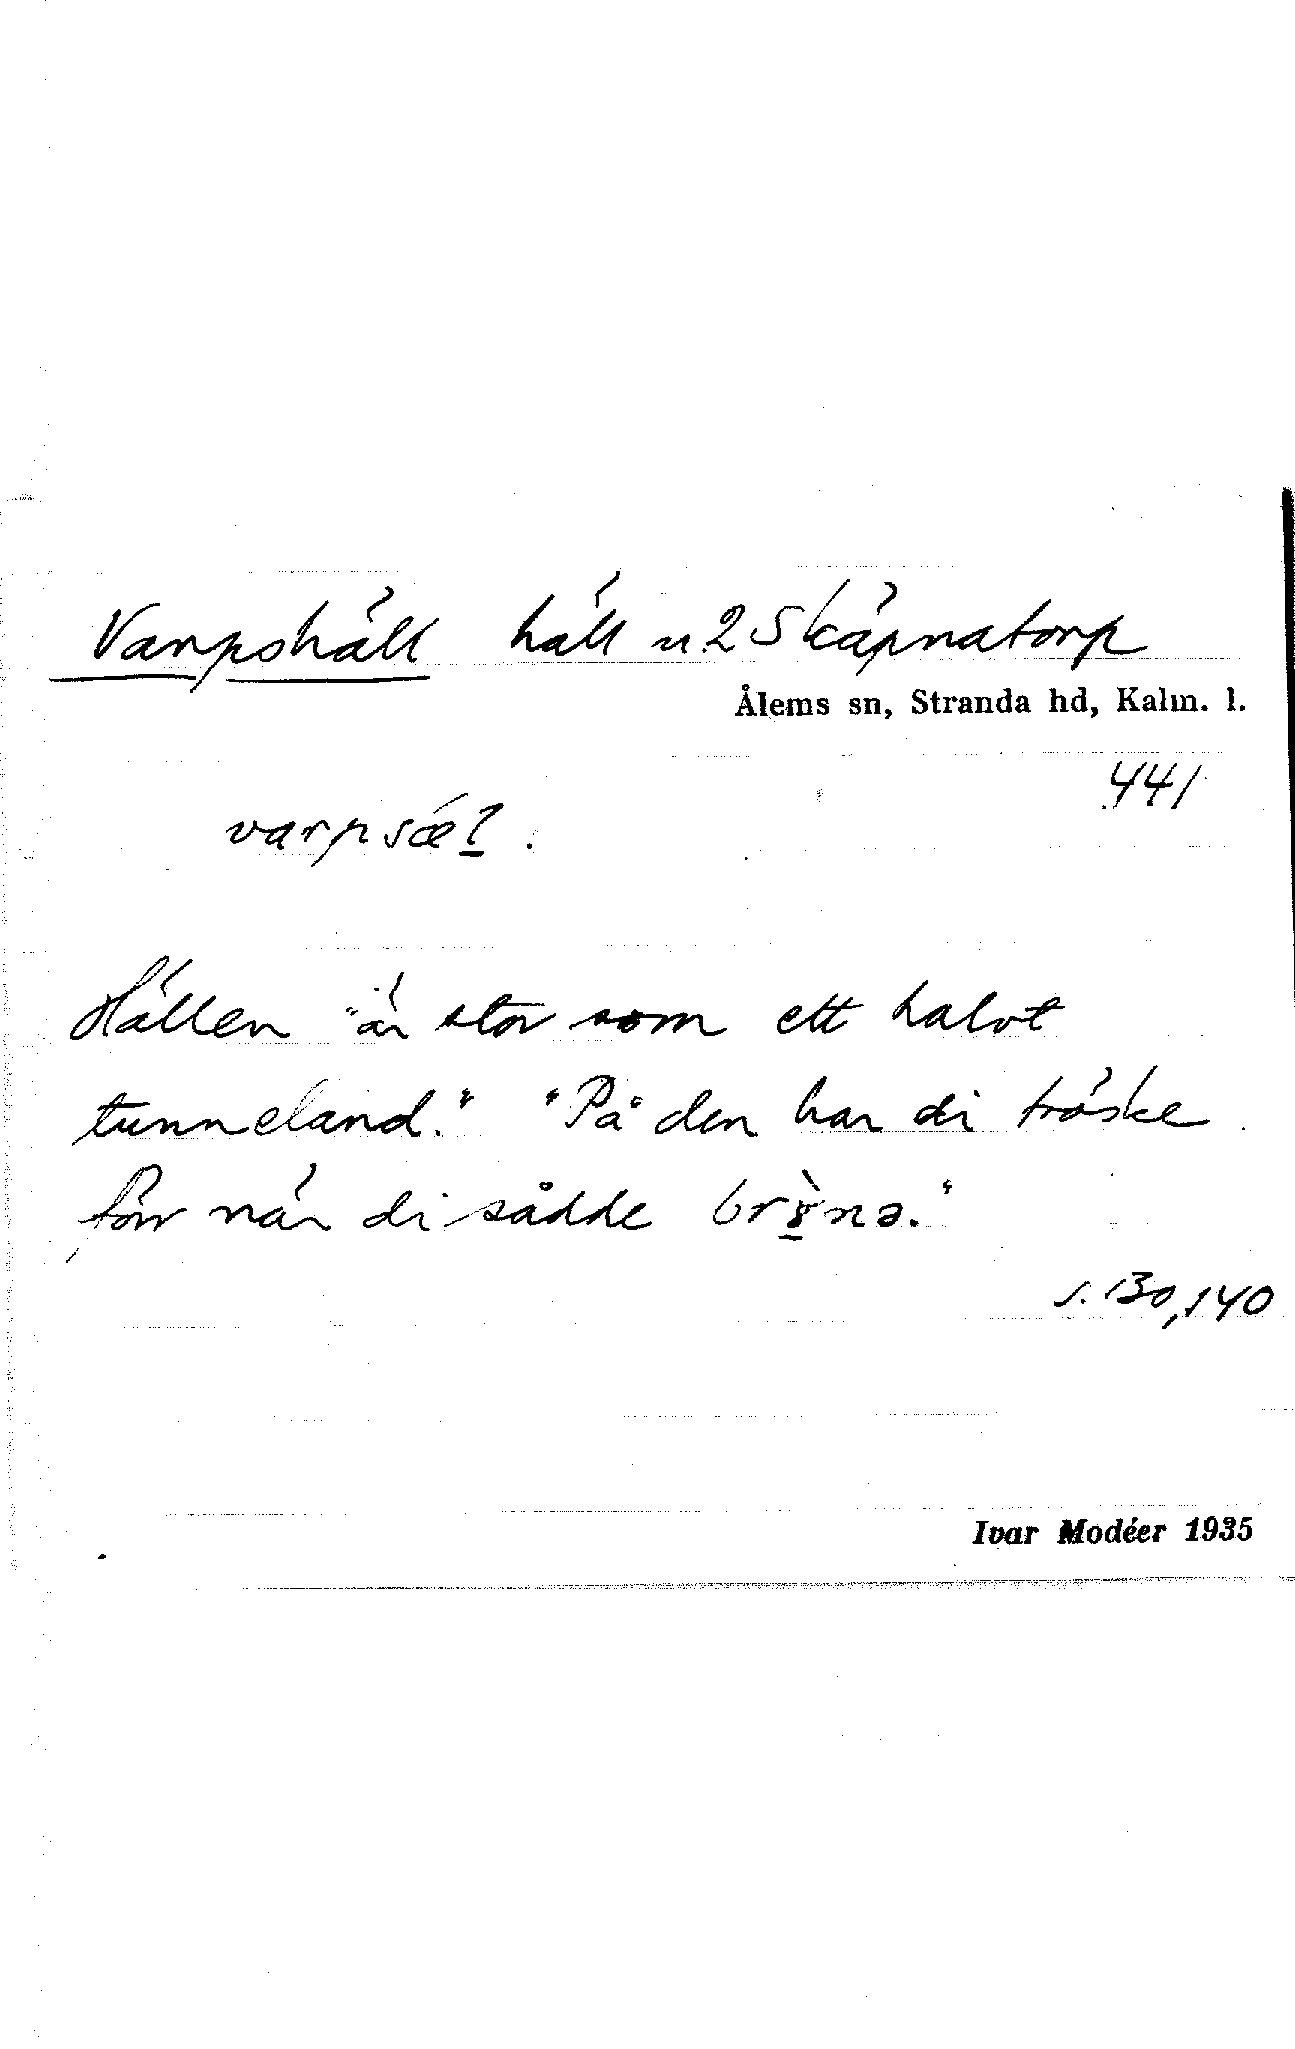 Varpshäll häll u. 2 Skäpnatorp
Ålems sn, Stranda hd, Kalm. l.
441
varpsæl.
Hällen "är stor som ett halvt
tunneland." "På den har di tröske
förr när di sådde brönə."
s. 130, 140
Ivar Modéer 1935